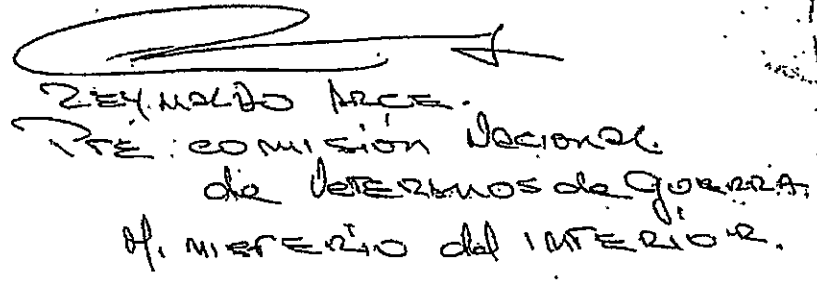 REYNALDO ARCE.
Pte: comisión Nacional
de Veteranos de Guerra.
Ministerio del INTERIOR.